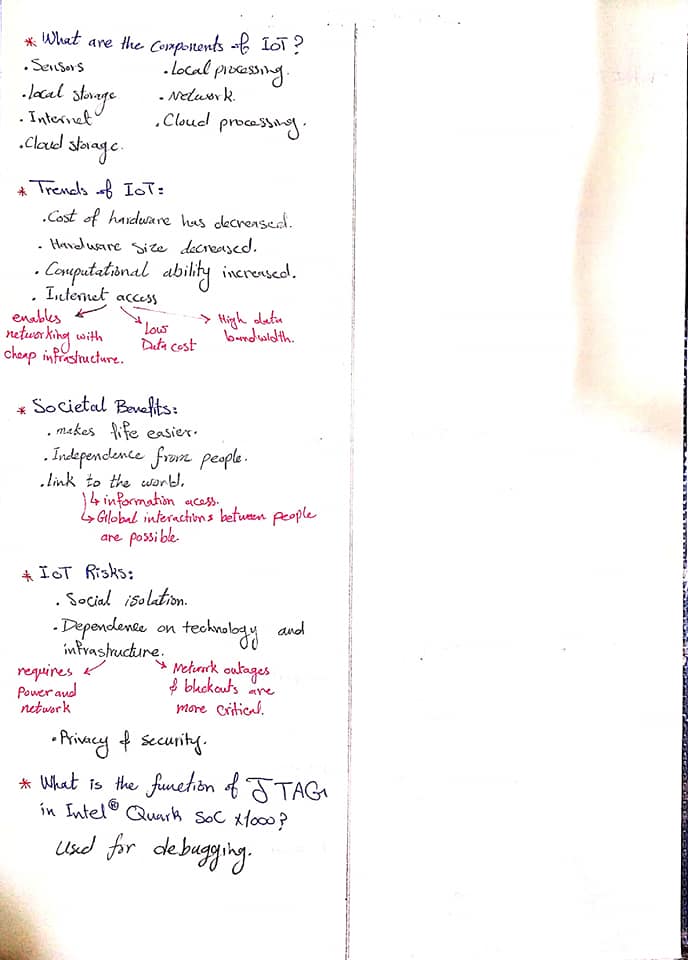 * What are the components of IoT?
. Sensors . Local processing.
. local storage . Network.
. Internet . Cloud processing.
. Cloud storage.
* Trends of IoT:
. Cost of hardware has decreased.
. Hardware size decreased.
. Computational ability increased.
. Internet access
enables networking with cheap infrastructure.
Low Data cost
High data bandwidth.
* Societal Benefits:
. makes life easier.
. Independence from people.
. link to the world.
↳ information acess.
↳ Global interactions between people
are possible.
* IoT Risks:
. Social isolation.
. Dependence on technology and
infrastructure.
requires Power and network
Network outages & blackouts are more critical.
. Privacy & security.
* What is the function of JTAG
in Intel® Quark SoC x1000?
Used for debugging.